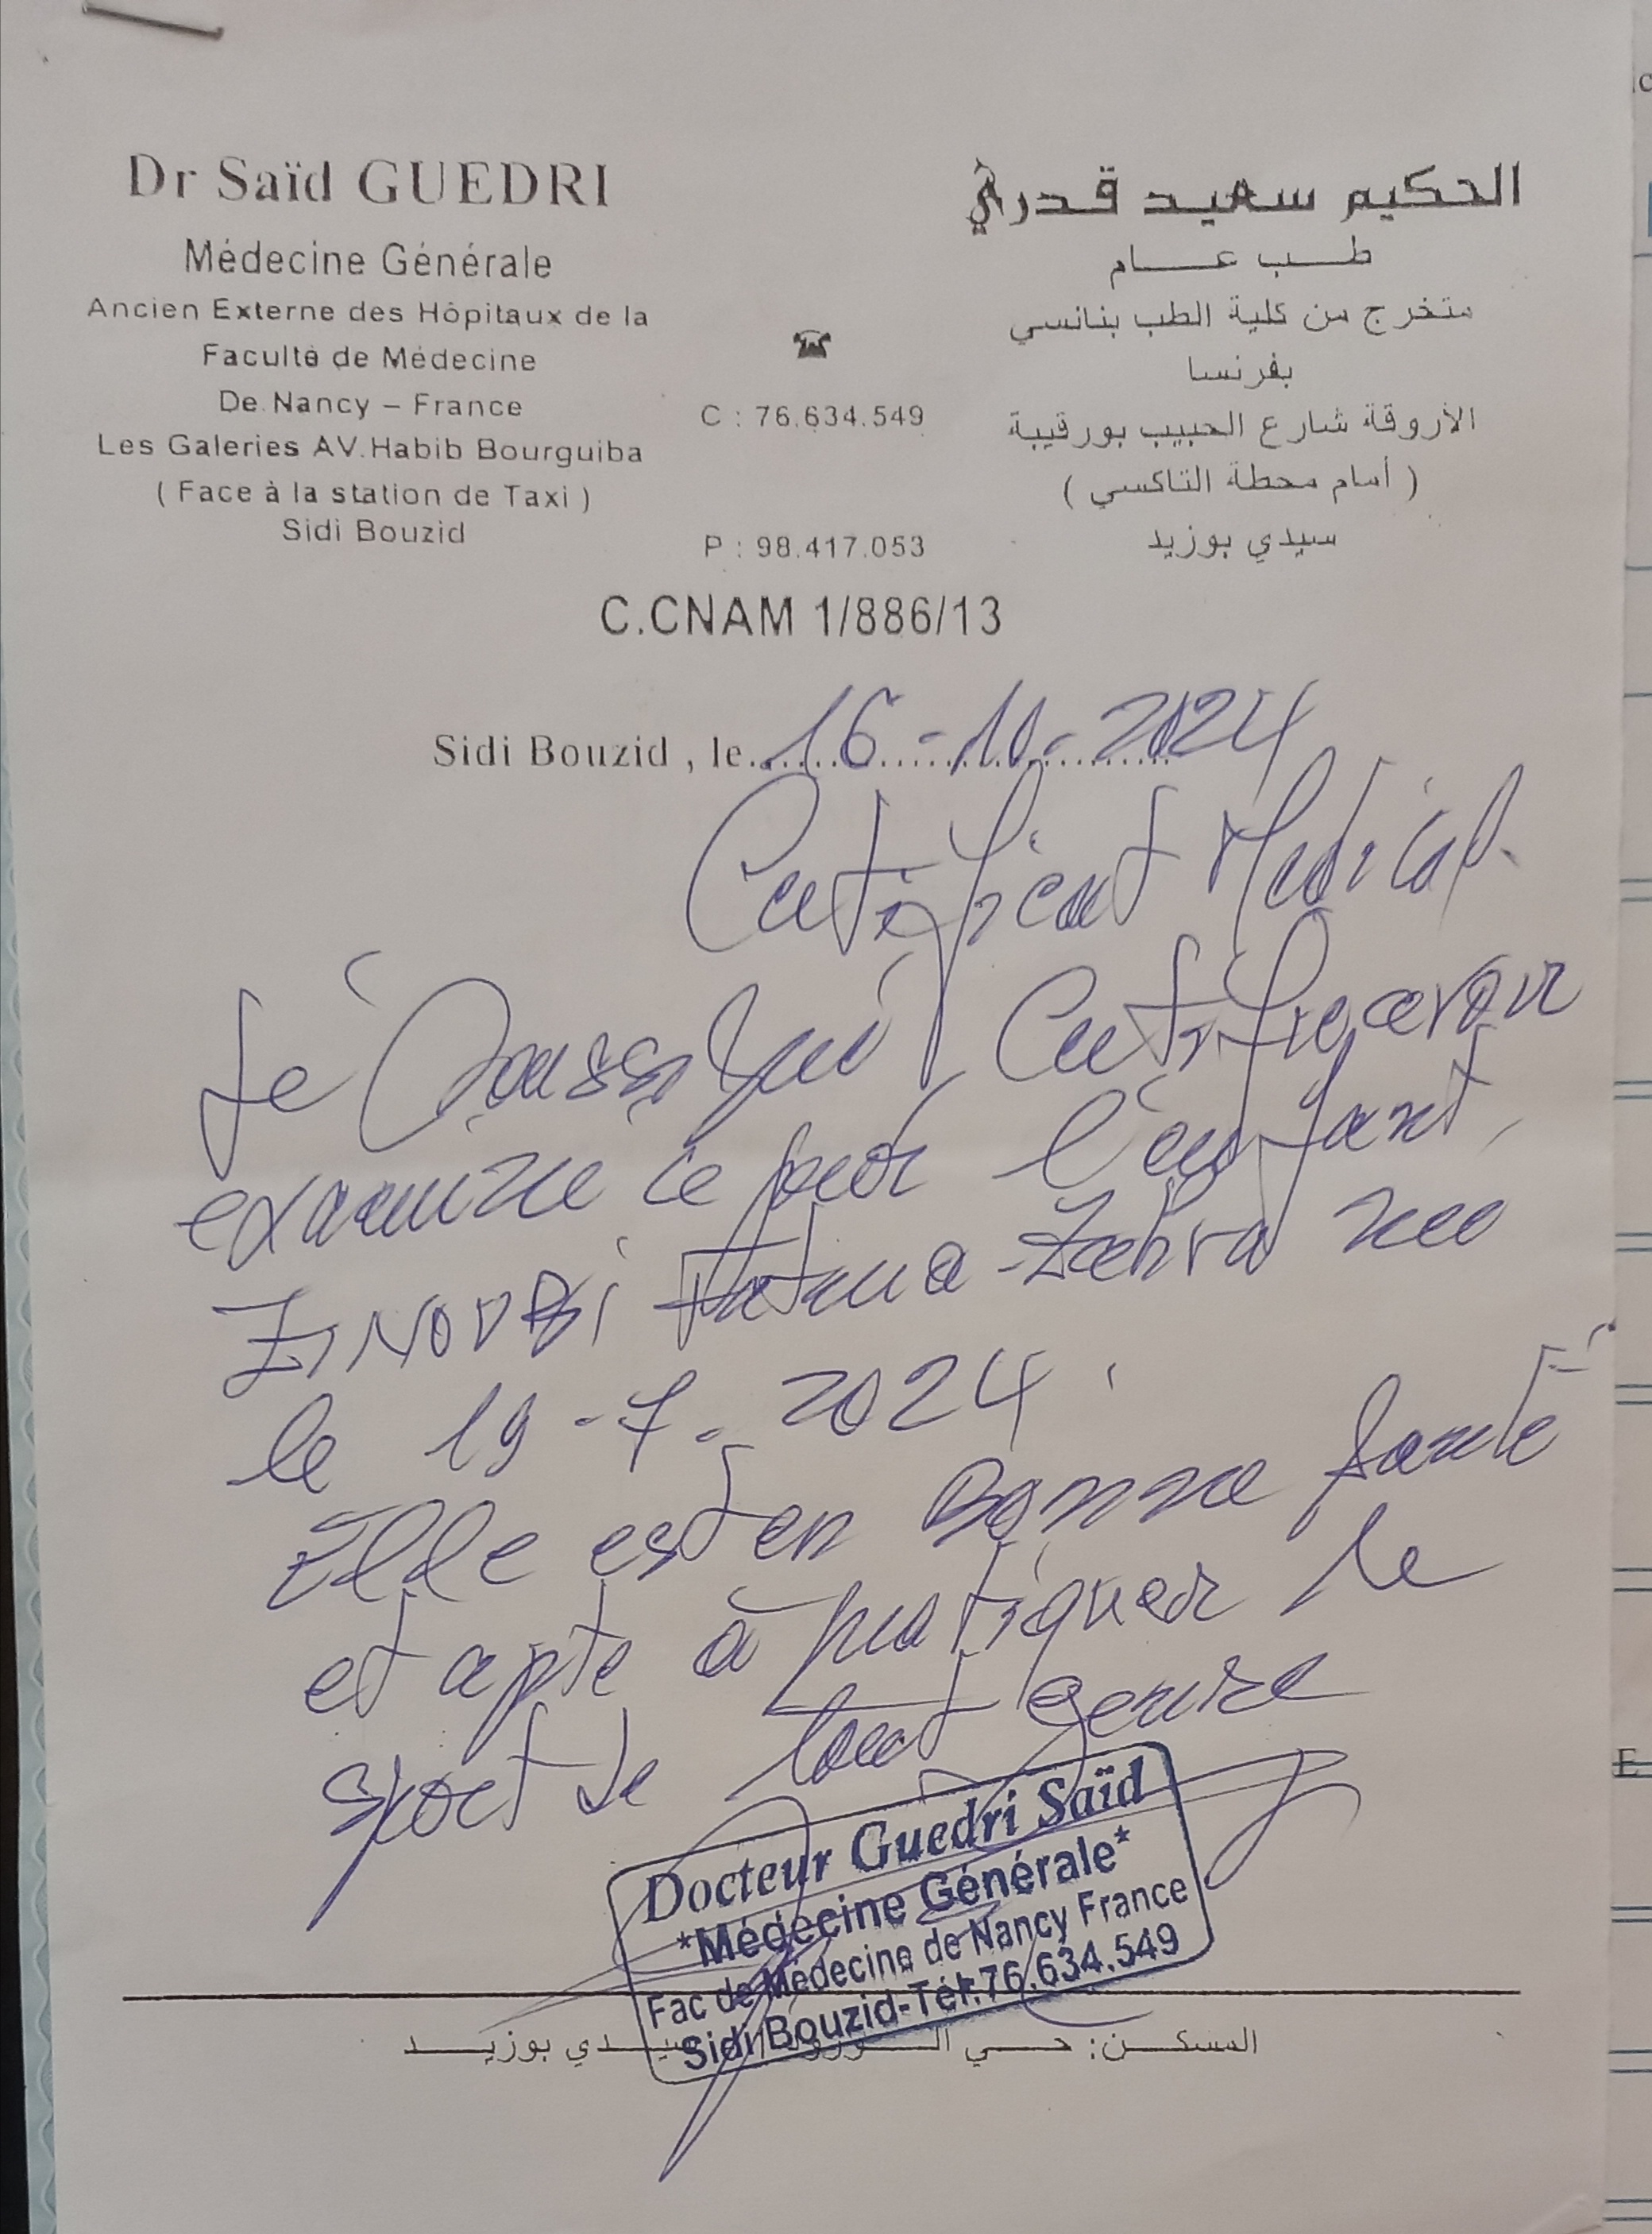 Dr Saïd GUEDRI
Médecine Générale
Ancien Externe des Hôpitaux de la
Faculté de Médecine
De Nancy – France
Les Galeries AV.Habib Bourguiba
( Face à la station de Taxi )
Sidi Bouzid
C : 76.634.549
P : 98.417.053
الحكيم سعيد قدري
طب عام
متخرج من كلية الطب بنانسي
بفرنسا
الأروقة شارع الحبيب بورقيبة
( أمام محطة التاكسي )
سيدي بوزيد
C.CNAM 1/886/13
Sidi Bouzid , le 16-10-2024
Certificat Médical
Je Soussigné Certifie avoir
examiné ce jour l'enfant
Fatma-Zahra née
le 19-7-2024
Elle est en Bonne santé
et apte à pratiquer le
sport de tout genre
Docteur Guedri Saïd
*Médecine Générale*
Fac de Médecine de Nancy France
Sidi Bouzid-Tél:76.634.549
المسكن: حي سيدي بوزيد